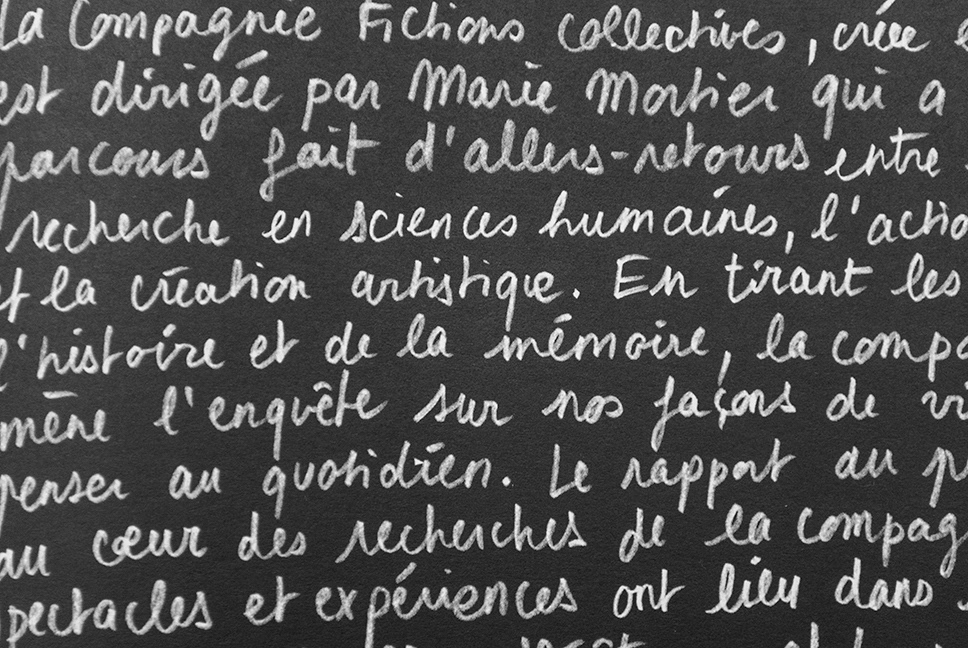 La Compagnie Fictions collectives, créée
est dirigée par Marie Mortier qui a
parcours fait d'allers-retours entre
recherche en sciences humaines, l'actio
et la création artistique. En tirant les
l'histoire et de la mémoire, la compa
mène l'enquête sur nos façons de vi
penser au quotidien. Le rapport au p
au cœur des recherches de la compag
spectacles et expériences ont lieu dans